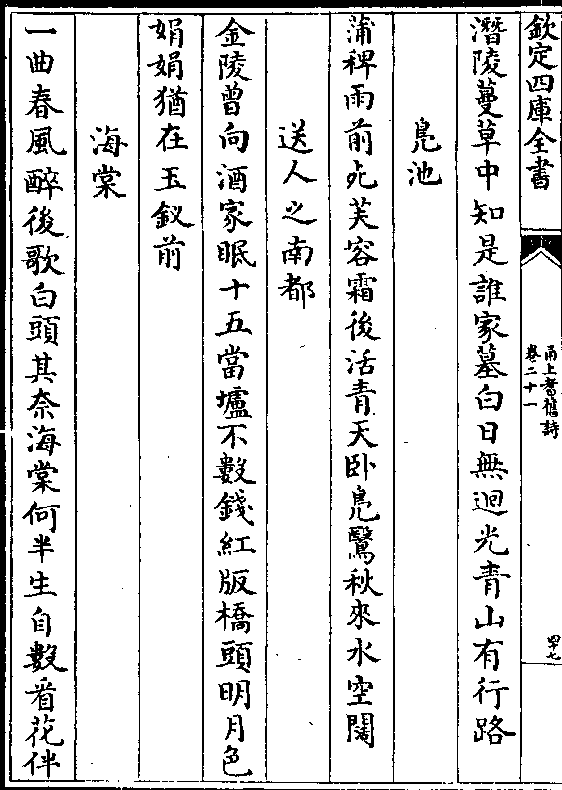 欽定四庫全書
甬上耆舊詩
卷二十一
四十七
潛陵蔓草中知是誰家墓白日無迴光青山有行路
鳬池
蒲稗雨前𣦸芙容霜後活青天卧鳬鷖秋來水空闊
送人之南都
金陵曾向酒家眠十五當壚不數錢紅版橋頭明月色
娟娟猶在玉釵前
海棠
一曲春風醉後歌白頭其奈海棠何半生自數看花伴